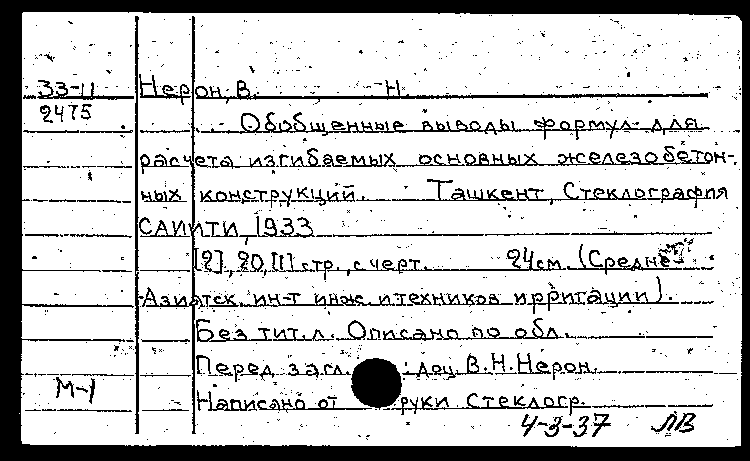 33-11 Нерон, В. Н.
2475
Обобщенные выводы формул для
расчета изгибаемых основных железобетон-
ных конструкций. Ташкент, Стеклография
САИИТИ, 1933
[2], 20, [1] стр., с черт. 24см. (Средне-
Азиатск. ин-т инж. и техников ирригации).
Без тит. л. Описано по обл.
Перед загл. : доц. В. Н. Нерон.
М-1
Написано от руки. Стеклогр.
4-3-37 ЛВ